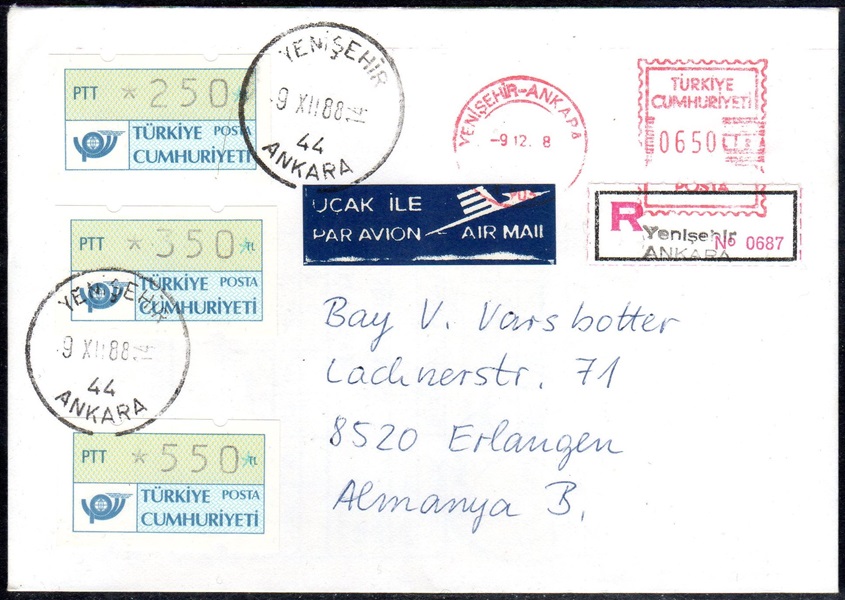 PTT *250 TL
TÜRKİYE POSTA
CUMHURİYETİ
YENİŞEHİR
9 XII 88
44
ANKARA
YENİŞEHİR-ANKARA
-9 12. 8
TÜRKİYE
CUMHURİYETİ
0650
POSTA
UÇAK İLE
PAR AVION AIR MAIL
R
Yenişehir
ANKARA
No 0687
PTT *350 TL
TÜRKİYE POSTA
CUMHURİYETİ
YENİŞEHİR
9 XII 88
44
ANKARA
PTT *550 TL
TÜRKİYE POSTA
CUMHURİYETİ
Bay V. Varsbotter
Lachnerstr. 71
8520 Erlangen
Almanya B.